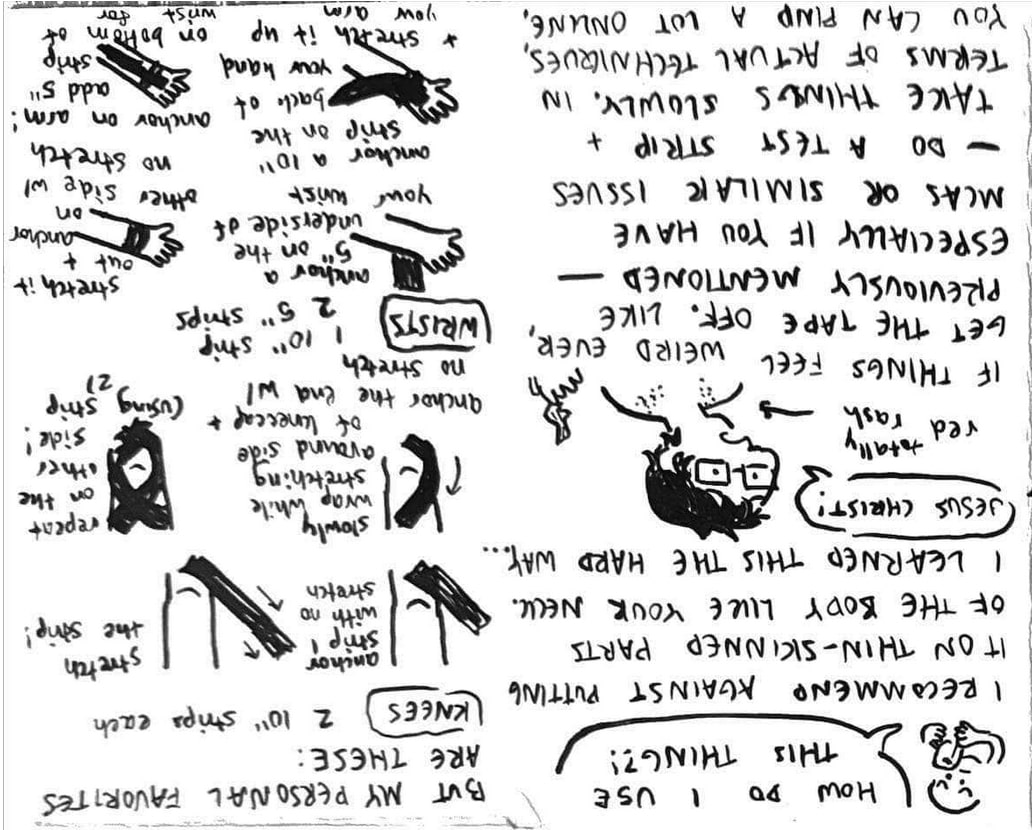 HOW DO I USE
THIS THING?!
I RECOMMEND AGAINST PUTTING
IT ON THIN-SKINNED PARTS
OF THE BODY LIKE YOUR NECK.
I LEARNED THIS THE HARD WAY...
JESUS CHRIST!
totally
red
rash
IF THINGS FEEL WEIRD EVER,
GET THE TAPE OFF. LIKE
PREVIOUSLY MENTIONED —
ESPECIALLY IF YOU HAVE
MCAS OR SIMILAR ISSUES
— DO A TEST STRIP +
TAKE THINGS SLOWLY. IN
TERMS OF ACTUAL TECHNIQUES,
YOU CAN FIND A LOT ONLINE,
BUT MY PERSONAL FAVORITES
ARE THESE:
KNEES 2 10" strips each
anchor
strip 1
with no
stretch
stretch
the strip!
slowly
wrap while
stretching
around side
of kneecap +
anchor the end w/
no stretch
repeat
on the
other
side!
(using strip
2)
WRISTS 1 10" strip
2 5" strips
anchor a
5" on the
underside of
your wrist
stretch it
out +
anchor
on
other side w/
no stretch
anchor a 10"
strip on the
back of
your hand
+ stretch it up
your arm
anchor on arm!
add 5"
strip
on bottom of
wrist for